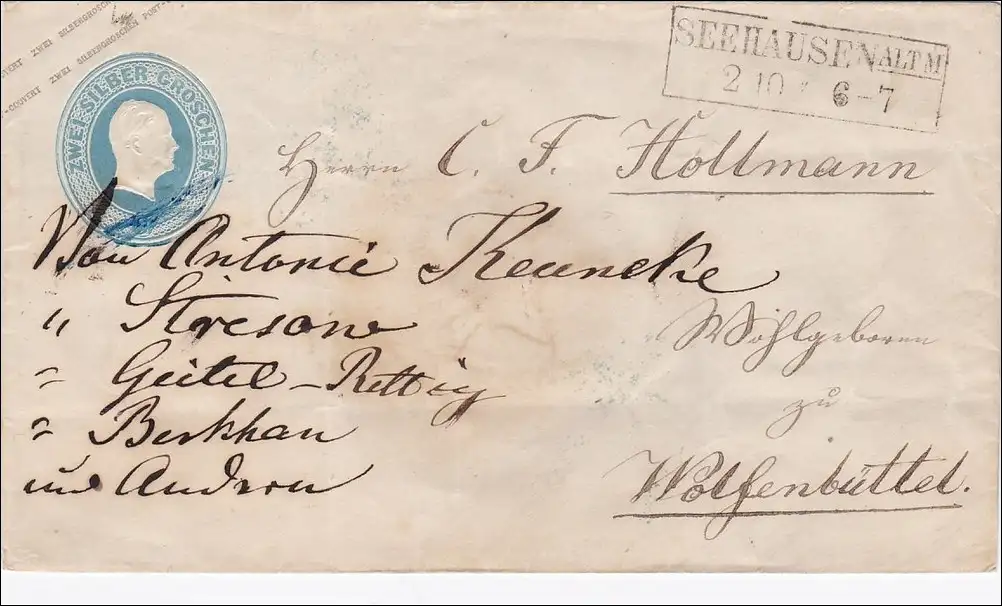 POST-COUVERT ZWEI SILBERGROSCHEN
COUVERT ZWEI SILBERGROSCHEN POST-
ZWEI SILBER GROSCHEN
SEEHAUSEN ALTM
2 10 6-7
Herrn C. F. Holtmann
Von Antonie Keuneke
" Stresow
" Geitel-Rettig
" Berkhan
und Andren
Wohlgeboren
zu
Wolfenbüttel.